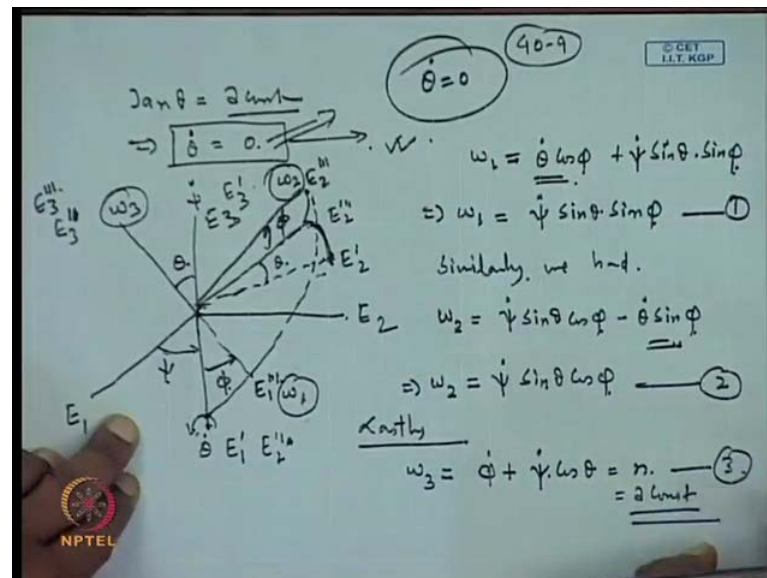 40-9
© CET
I.I.T. KGP
θ̇ = 0
Tan θ = a const
⇒ θ̇ = 0.
ω₁ = θ̇ cos φ + ψ̇ sin θ. sin φ
⇒ ω₁ = ψ̇ sin θ sin φ — ①
Similarly, we had.
ω₂ = ψ̇ sin θ cos φ - θ̇ sin φ
⇒ ω₂ = ψ̇ sin θ cos φ — ②
Lastly
ω₃ = φ̇ + ψ̇. cos θ = n. — ③.
= a const
E₃'''.
E₃''
ω₃
ψ̇
E₃'
E₃
ω₂
E₂'''
φ
E₂''
θ.
θ.
E₂'
E₂
ψ
φ
E₁'''
ω₁
E₁
θ̇
E₁'
E₂''
NPTEL